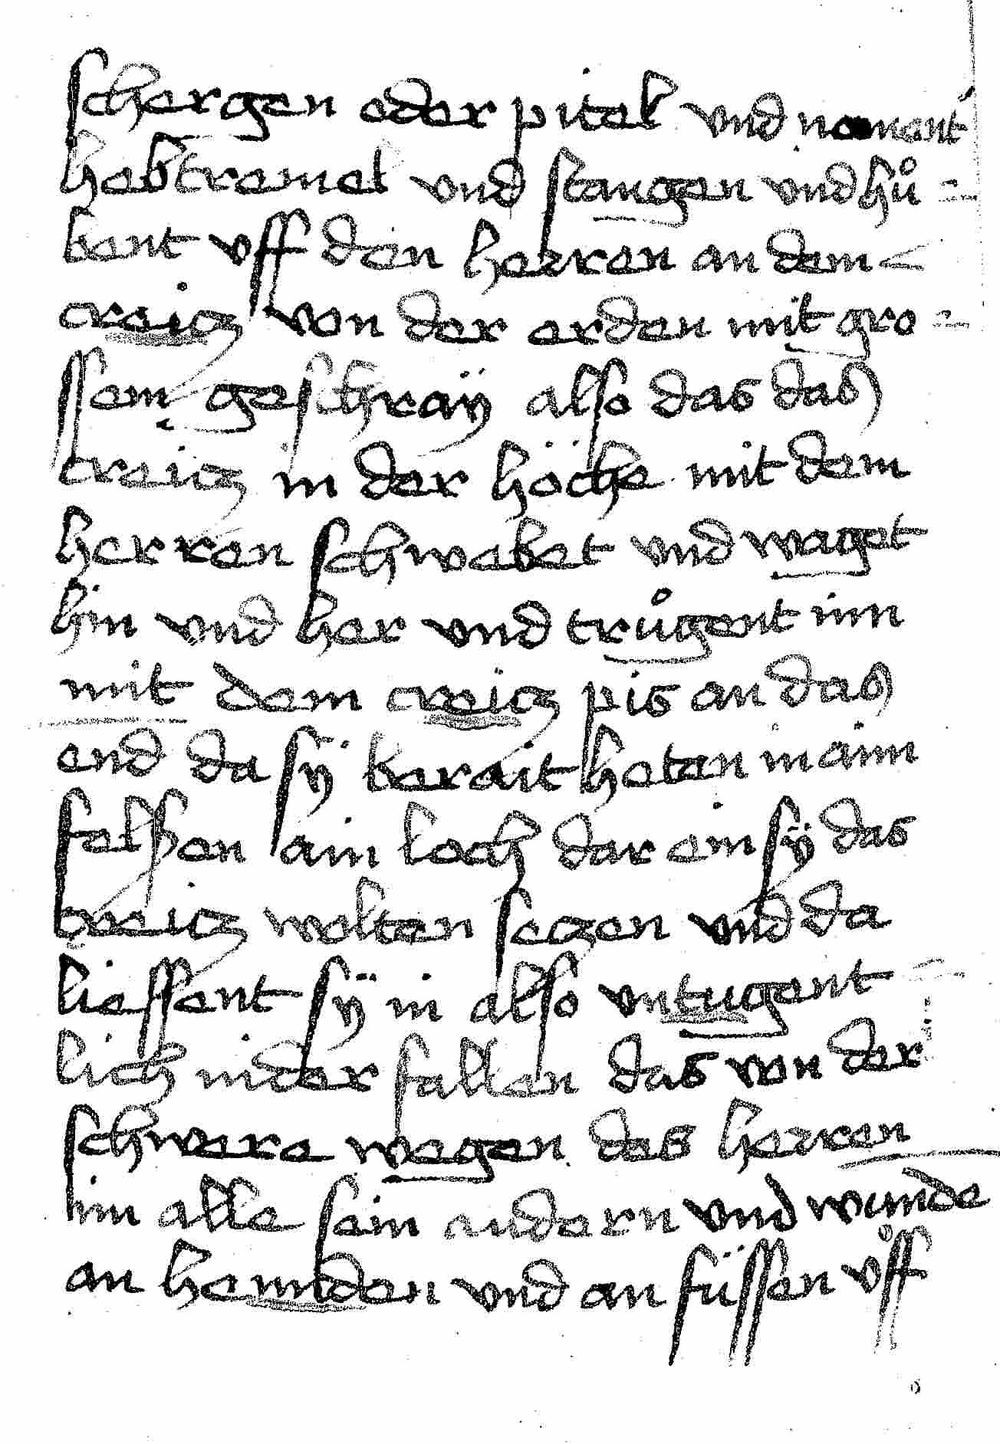 schergen oder pitel vnd nament
hebtremel vnd stangen vnd hů =
bent vff den herren an dem
creicz von der erden mit gro =
ssem geschraÿ also das das
creicz in der höche mit dem
herren schwebet vnd waget
hin vnd her vnd trůgent im
mit dem creicz pis an das
end da sÿ berait heten in ainn
felssen ain loch dar ein sÿ das
creicz wolten seczen vnd da
liessent sÿ in also vntugent =
lich nider fallen das von der
schwere wegen des herren
im alle sein audern vnd wunde
an hennden vnd an füssen vff